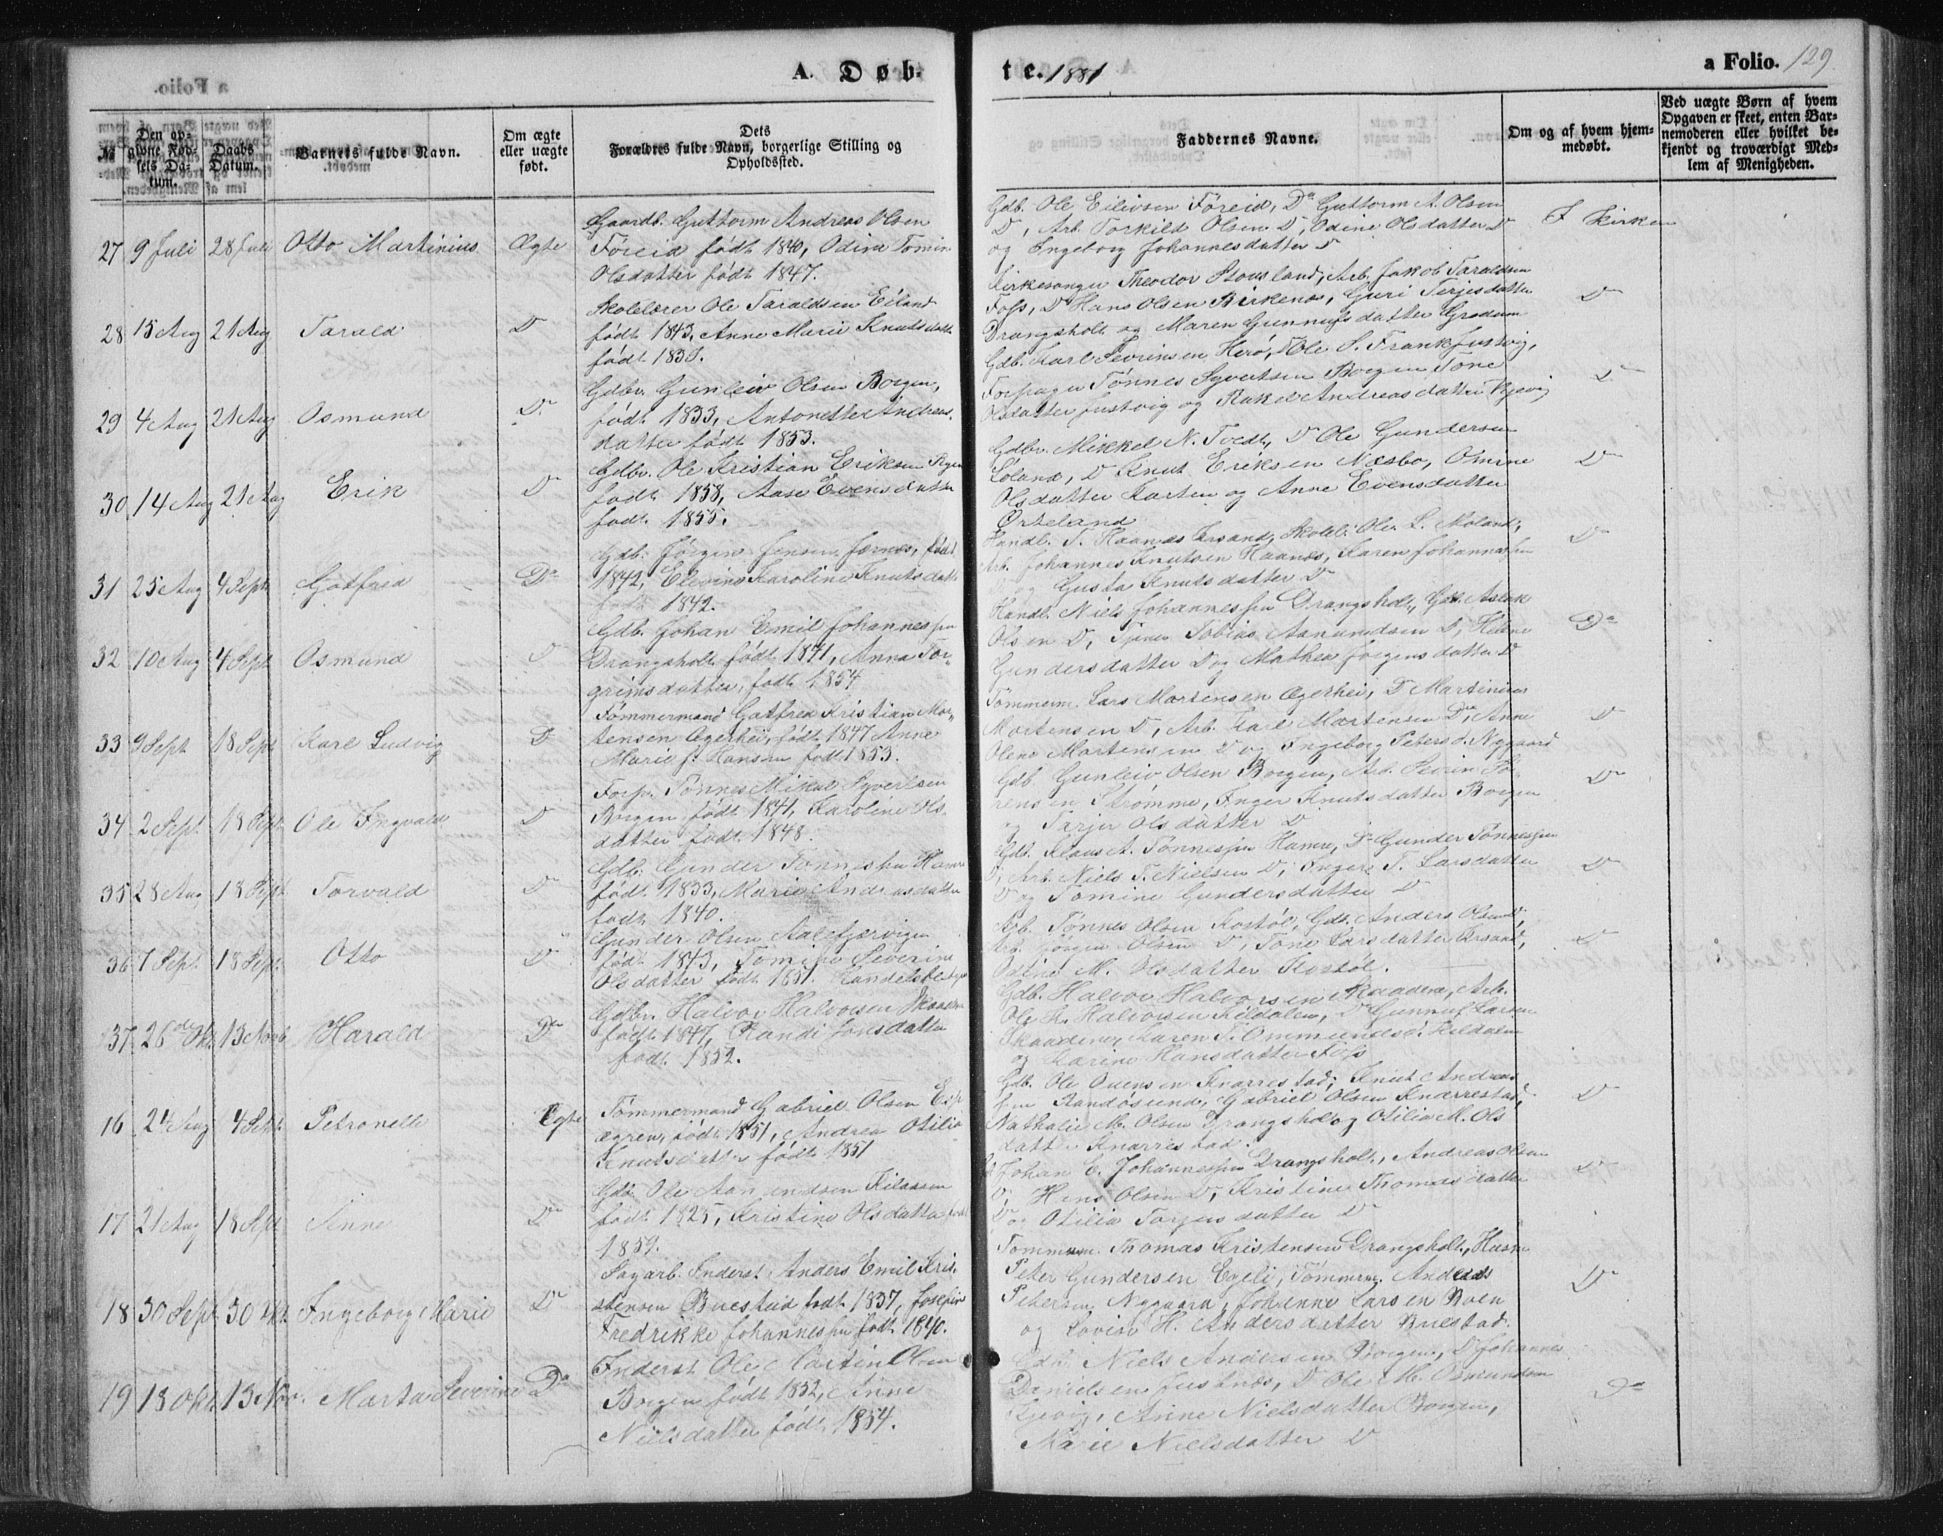 A. Døb-
te. 1881
a Folio. 129
№
Den opgivne Fødsels Datum.
Daabs Datum.
Barnets fulde Navn.
Om ægte eller uægte født.
Dets Forældres fulde Navn, borgerlige Stilling og Opholdssted.
Faddernes Navne.
Om og af hvem hjemmedøbt.
Ved uægte Børn af hvem Opgaven er skeet, enten Barnemoderen eller hvilket bekjendt og troværdigt Medlem af Menigheden.
27 9 Juli 28 Juli Otto Martinius Ægte
Gaardb. Guttorm Andreas Olsen
Föreid født 1840, Odine Tomine
Olsdatter født 1847.
Gdb. Ole Eilevsen Föreid, Do Guttorm A. Olsen
Do, Arb. Torkild Olsen Do, Odine Olsdatter Do
og Ingeborg Johannesdatter Do
I Kirken
28 15 Aug 21 Aug Tarald Do
Skolelærer Ole Taraldsen Eiland
født 1843, Anne Marie Knutsdatter
født 1838.
Kirkesanger Theodor Stousland, Arb. Jakob Taraldsen
Foss, Do Hans Olsen Birkenæs, Guri Terjesdatter
Drangsholt og Maren Gunnufsdatter Grødum
Do
29 4 Aug 21 Aug Osmund Do
Gdbr. Gunleiv Olsen Borgen,
født 1833, Antonette Andreas-
datter født 1853.
Gdb. Karl Severinsen Herø, Ole S. Frank Justvig,
Forpagter Tønnes Syvertsen Borgen Tone
Olsdatter Justvig og Rakel Andreasdatter Kjevig
Do
30 14 Aug 21 Aug Erik Do
Gdbr. Ole Kristian Eriksen
født 1858, Aase Evensdatter
født 1855.
Gdbr. Mikkel N. Tvedt, Do Ole Gundersen
Do Knut Eriksen Næsbø,
Olsdatter og Anne Evensdatter
Do
31 25 Aug 4 Sept Gotfred Do
Gdb. Jørgen Jensen født
1842, Elevine Karoline Knutsdatter
1842.
Handl. T. Haanæs Krsand, Skolel. Ole L. Moland,
Arb. Johannes Knutsen Haanæs, Karen Johannessen
og Gusta Knutsdatter Do
Do
32 10 Aug 4 Sept Osmund Do
Gdb. Johan Emil Johannessen
Drangsholt født 1841, Anna Tor-
grimsdatter, født 1854
Handl. Niels Johannessen Drangsholt, Gdb. Aslak
Olsen Do, Tjener Tobias Aanundsen Do, Helene
Gundersdatter Do og Mathea Jørgensdatter Do
Do
33 9 Sept 18 Sept Karl Ludvig Do
Tømmermand Gotfred Kristian Mor-
tensen Ægerhei, født 1847 Anne
Marie f. Hansen født 1853.
Tømmerm. Lars Mortensen Ægerhei, Do Martinius
Mortensen Do, Arb. Karl Mortensen Do, Anne
Olene Mortensen Do og Ingeborg Petersd. Nygaard
Do
34 2 Sept. 18 Sept. Ole Ingvald Do
Forp. Tønnes Mikal Syvertsen
Borgen født 1841, Karoline Ols-
datter født 1848.
Gdb. Gunleiv Olsen Borgen, Arb. Severin Sø-
rensen Strømme, Inger Knutsdatter Borgen
og Tarjer Olsdatter Do
Do
35 28 Aug 18 Sept. Torvald Do
Gdb. Gunder Tønnessen Hamre
født 1833, Marie Andreasdatter
født 1840.
Gdb. Klaus A. Tønnessen Hamre, Do Gunder Tønnessen
Do, Arb. Niels T. Nielsen Do, Inger T. Larsdatter
Do og Tomine Gundersdatter Do
Do
36 7 Sept. 18 Sept. Otto Do
Gunder Olsen Aalefjærvigen
født 1843, Tomine Severine
Olsdatter født 1851.
Arb. Tønnes Olsen Kostøl, Gdb. Anders Olsen Do,
Arb. Jørgen Olsen Do, Tone Larsdatter Krsand,
Odine M. Olsdatter Kostøl.
Do
37 26de Okt. 13 Novb. Harald Do
Gdbr. Halvor Halvorsen Skaaden
født 1847, Randi Jonsdatter
født 1852.
Gdb. Halvor Halvorsen Skaadene, Arb.
Ole H. Halvorsen Kildalen, Do Gunnuf Larsen
Skaadene, Karen T. Ommundsd. Kildalen
og Karine Hansdatter Foss
16 24 Aug 4 Sept. Petronelle Ægte
Tømmermand Gabriel Olsen Esp-
ægren, født 1851, Andrea Otilia
Knutsdatter født 1851
Gdb. Ole Ovensen Knarrestad, Knut Andreas-
sen Randøsund, Gabriel Olsen Knarrestad,
Nathalie M. Olsen Drangshol og Otilia M. Ols
datter Knarrestad.
Do
17 21 Aug 18 Sept Anne Do
Gdb. Ole Aanundsen Kilaasen
født 1825, Kristine Olsdatter født
1859.
Johan E. Johannessen Drangsholt, Andreas Olsen
Do, Hans Olsen Do, Kristine Thomasdatter
Do og Otilia Torjusdatter Do
Do
18 30 Sept 30 Okt. Ingeborg Marie Do
Sagarb. Inderst Anders Emil Kris-
tensen Buestad født 1837, Josefine
Fredrikke Johannessen født 1840.
Tømmerm. Thomas Kristensen Drangsholt, Husm
Peter Gundersen Egeli, Tømmerm. Andreas
Petersen Nygaard, Johanne Larsen Boen
og Lovise H. Andersdatter Buestad.
Do
19 18 Okt. 13 Nov. Marta Severine Do
Inderst Ole Martin Olsen
Borgen født 1852, Anne
Nielsdatter født 1854.
Gdb. Niels Andersen Borgen, Do Johannes
Danielsen Justnæs, Do Ole M. Osmundsen
Kjevig, Anne Nielsdatter Borgen,
Marie Nielsdatter Do
Do